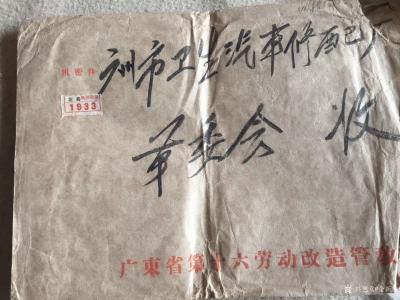 机密件
广州市卫生汽车修配厂
1933
革委会 收
广東省第十六劳动改造管教